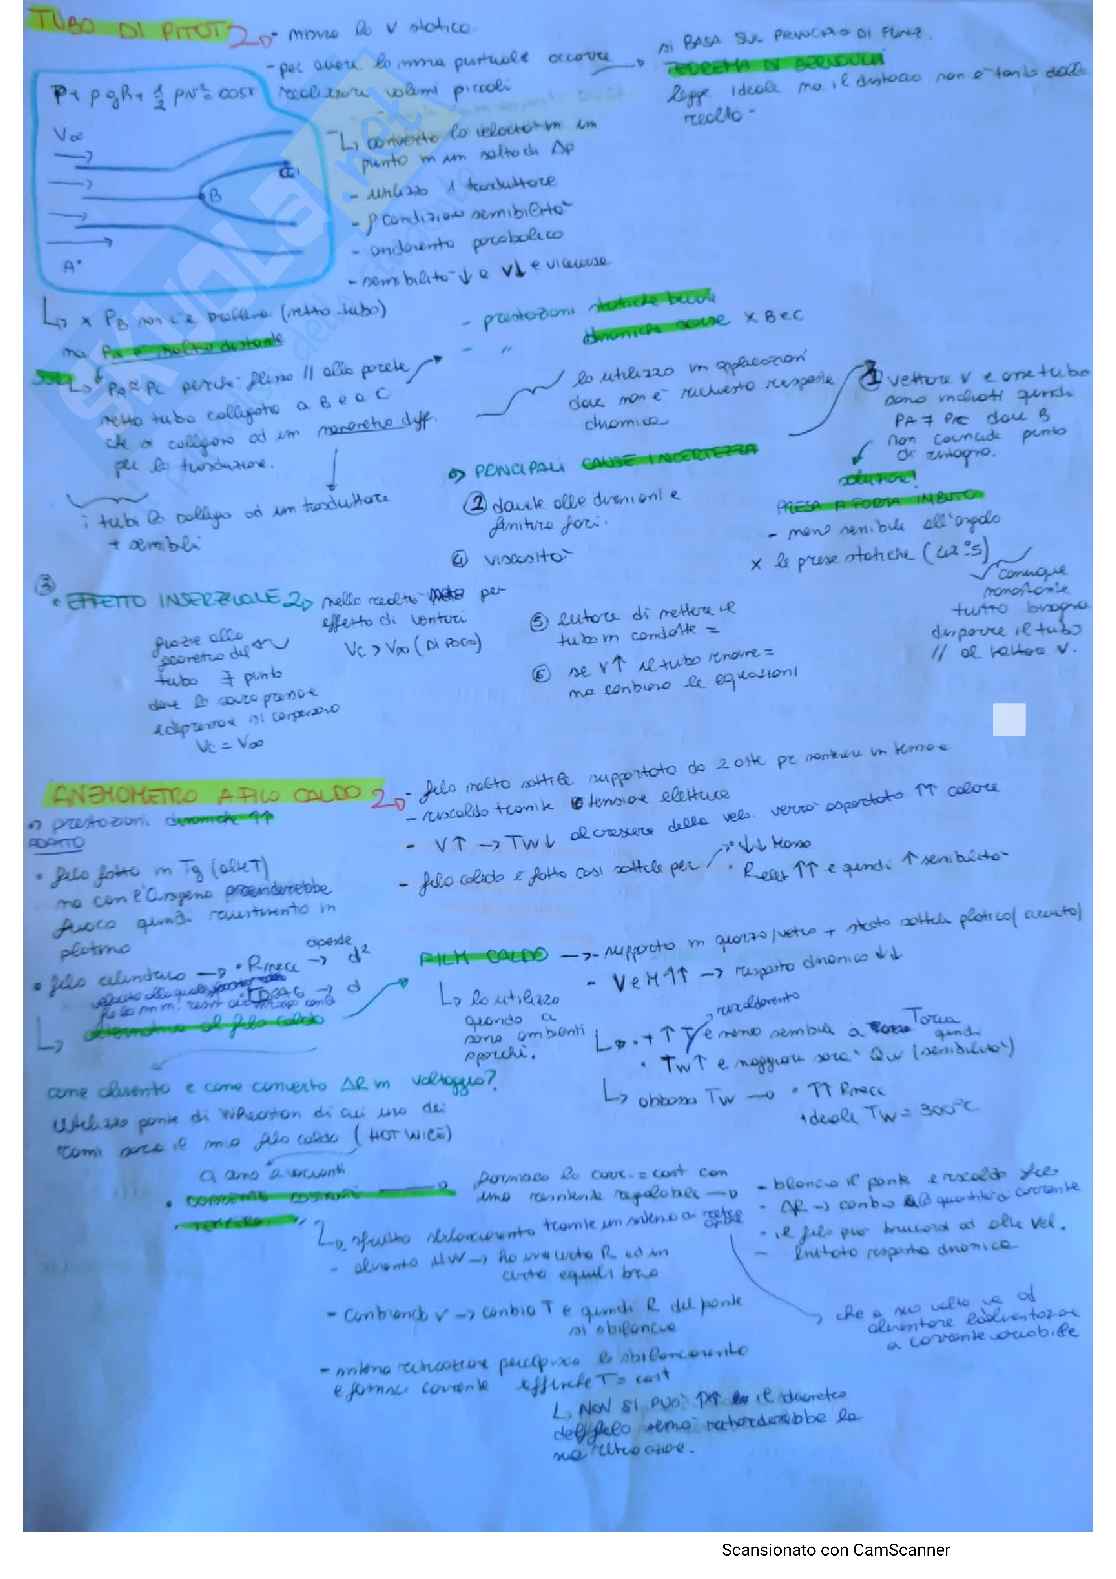 TUBO DI PITOT
- misura la V statica
- per avere la misura puntuale occorre
realizzare volumi piccoli
si BASA SUL PRINCIPIO DI FUNZ.
TEOREMA DI BERNOULLI
legge ideale ma il distacco non è tanto dalla
realtà -
P + ρgh + 1/2 ρv² = cost
V∞
B
C
A•
↳ converto la velocità in un
punto in un salto di Δp
- utilizzo 1 trasduttore
- ρ condiziona sensibilità
- andamento parabolico
- sensibilità ↓ a V↓ e viceversa
↳ x PB non c'è problema (metto tubo)
ma PA è molto distante
PA ≈ PC perché flusso // alla parete
metto tubo collegato a B e a C
che si collegano ad un manometro diff.
per la trasduzione.
i tubi li collego ad un trasduttore
+ sensibili
- prestazioni statiche buone
- " dinamiche scarse x B e C
lo utilizzo in applicazioni
dove non è richiesta risposta
dinamica
PRINCIPALI CAUSE INCERTEZZA
① vettore V e asse tubo
sono inclinati quindi
PA ≠ PC dove B
non coincide punto
di ristagno.
soluzione!
PRESA A FORMA IMBUTO
- meno sensibile all'angolo
x le prese statiche
comunque
nonostante
tutto bisogna
disporre il tubo
// al vettore V.
② dovute alle dimensioni e
finitura fori.
④ viscosità
③
• EFFETTO INSERZIONE
nella realtà per
effetto di venturi
VC > V∞ (DI POCO)
grazie alla
geometria del
tubo ∃ punto
dove la sovrapressione
e depressione si compensano
VC = V∞
⑤ evitare di mettere il
tubo in condotte =
⑥ se V↑ il tubo rimane =
ma cambiano le equazioni
ANEMOMETRO A FILO CALDO
prestazioni dinamiche ↑↑
ADATTO
- filo molto sottile supportato da 2 aste per mantenere in tensione
- riscaldo tramite tensione elettrica
- V↑ → Tw↓ al crescere della velo. verrà asportato ↑↑ calore
- filo caldo è fatto così sottile per
• ↓↓ Massa
• Relet ↑↑ e quindi ↑ sensibilità
• filo fatto in Tg (alte T)
ma con l'ossigeno prenderebbe
fuoco quindi rivestimento in
platino
• filo cilindrico → • Rmecc → d²
dipende
→ d
↳ alternativa al filo caldo
FILM CALDO → - supporto in quarzo/vetro + strato sottile platino
- V e M ↑↑ → risposta dinamica ↓↓
↳ lo utilizzo
quando a
sono ambienti
sporchi.
riscaldamento
• + ↑ T è meno sensibile a Taria
quindi
• Tw↑ e maggiore sarà Qw (sensibilità)
↳ abbasso Tw → • ↑↑ Rmecc
• ideale Tw = 300°C
come alimento e come converto ΔR in voltaggio?
Utilizzo ponte di Wheaston di cui uno dei
rami sarà il mio filo caldo (HOT WIRE)
ci sono 2 varianti
• CORRENTE COSTANTE
forniamo la corr. = cost con
una resistenza regolabile →
- bilancio il ponte e riscaldo filo
- ΔR → cambio quantità corrente
- il filo può bruciarsi ad alte vel.
- limitata risposta dinamica
↳ sfrutto sbilanciamento tramite un sistema a retroaz.
- alimento HW → ho una certa R ed un
certo equilibrio
- cambiando V → cambia T e quindi R del ponte
si sbilancia
- sistema retroazione percepisce lo sbilanciamento
e fornisce corrente affinché T = cost
che a sua volta va ad
alimentare l'alimentazione
a corrente variabile
↳ NON SI PUÒ ↑↑ il diametro
del filo sennò ritarderebbe la
sua retroazione.
Scansionato con CamScanner